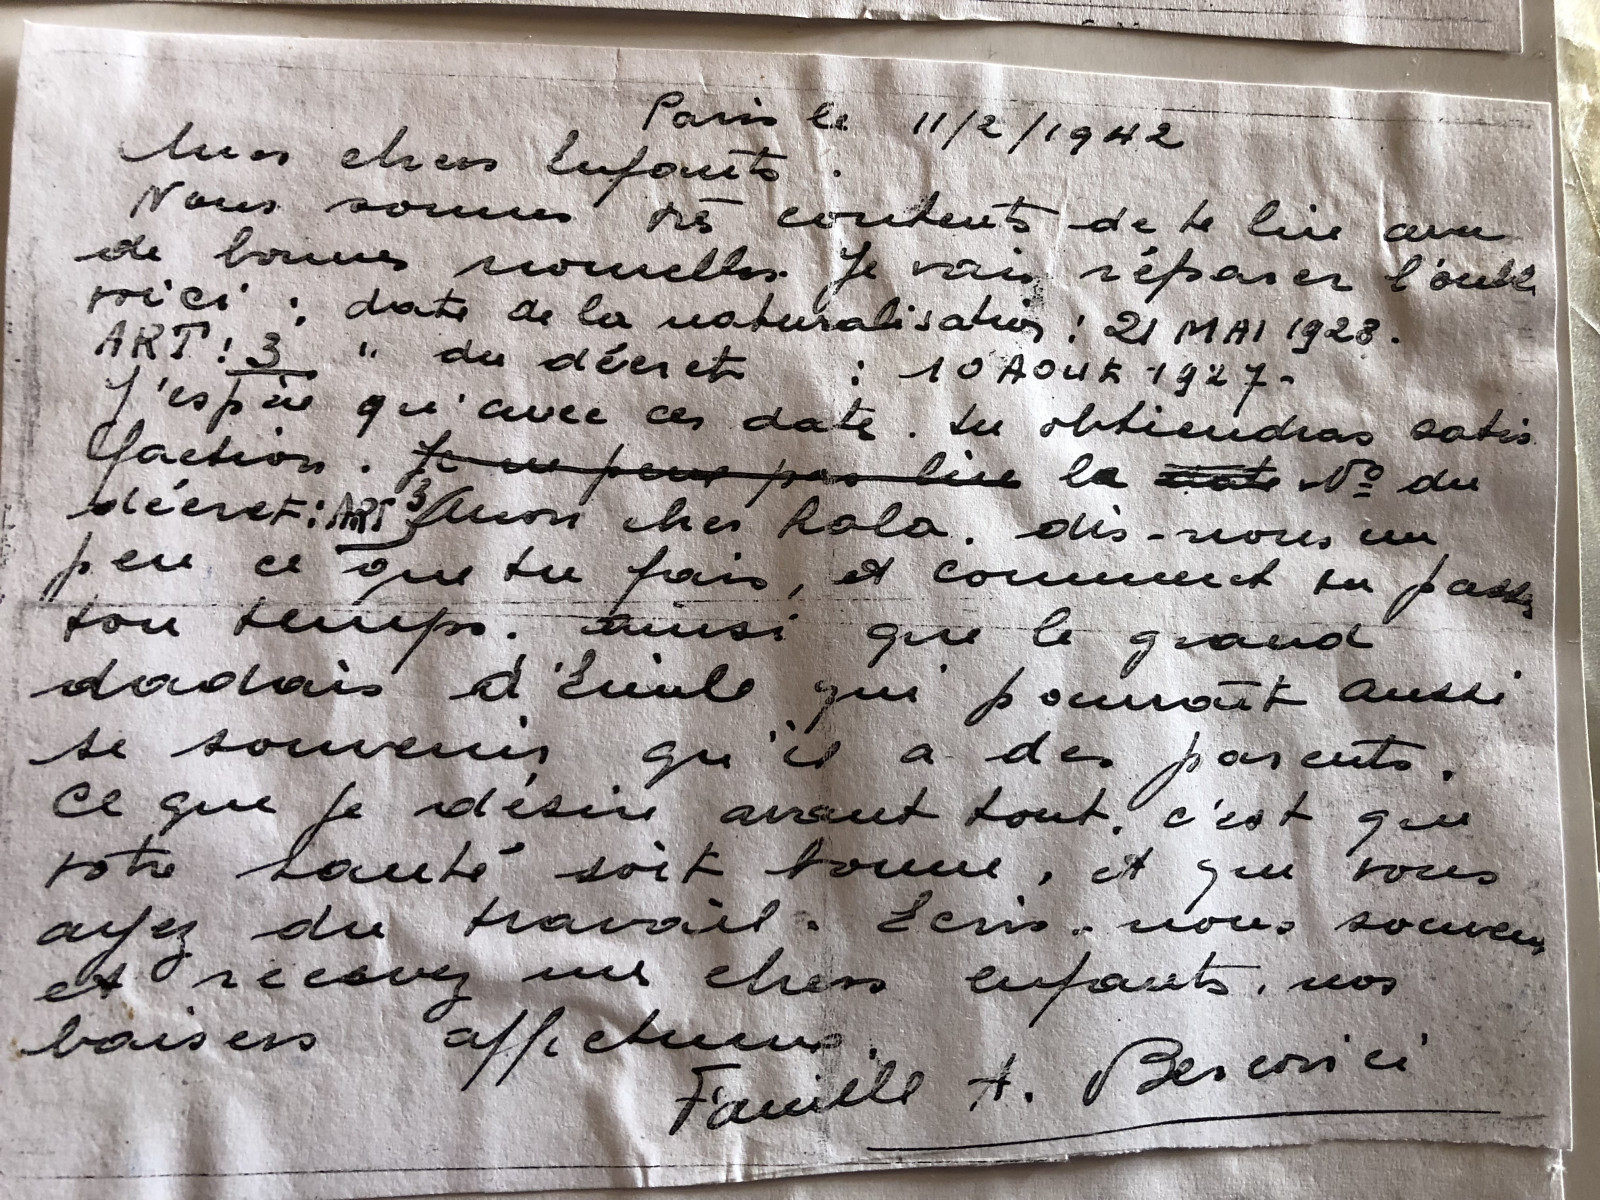 Paris le 11/2/1942
Mes chers Enfants.
Nous sommes très contents de te lire avec
de bonnes nouvelles. Je vais réparer l'oubli
voici : date de la naturalisation : 21 MAI 1928.
ART : 3 " du décret : 10 AOUT 1927.
J'espère qu'avec ces date. tu obtiendras satis
faction. Je ne peux pas lire la date No du
décret : ART 3 Mon cher Lola. dis-nous un
peu ce que tu fais, et comment tu passes
ton temps. ainsi que le grand
dadais d'Emile qui pourrait aussi
se souvenir qu'il a des parents.
Ce que je désire avant tout. c'est que
votre santé soit bonne, et que vous
ayez du travail. Ecris-nous souvent
et recevez mes chers enfants. nos
baisers affectueux.
Famille A. Bercovici